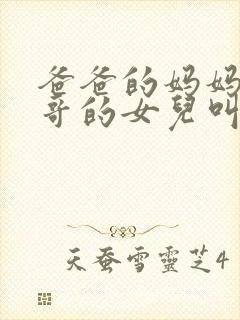 爸爸的妈妈
哥的女兒叫
天蚕雪靈芝4